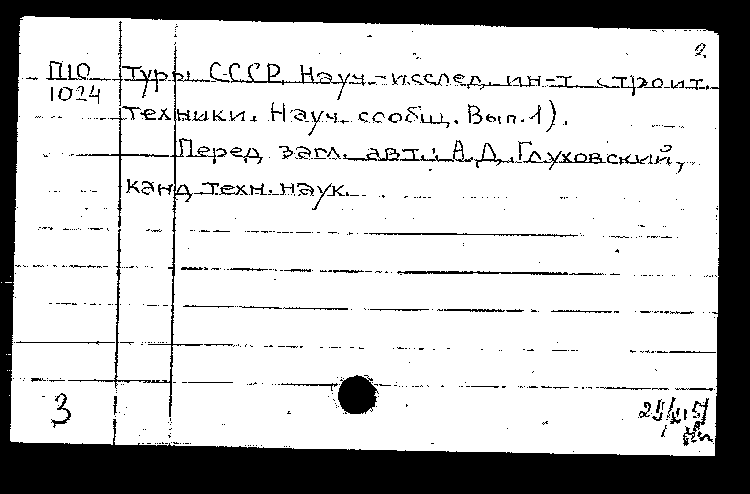 2.
П10 туры СССР. Науч.-исслед. ин-т строит.
1024 техники. Науч. сообщ. Вып. 1).
Перед загл. авт.: А.Д. Глуховский,
канд техн. наук.
3